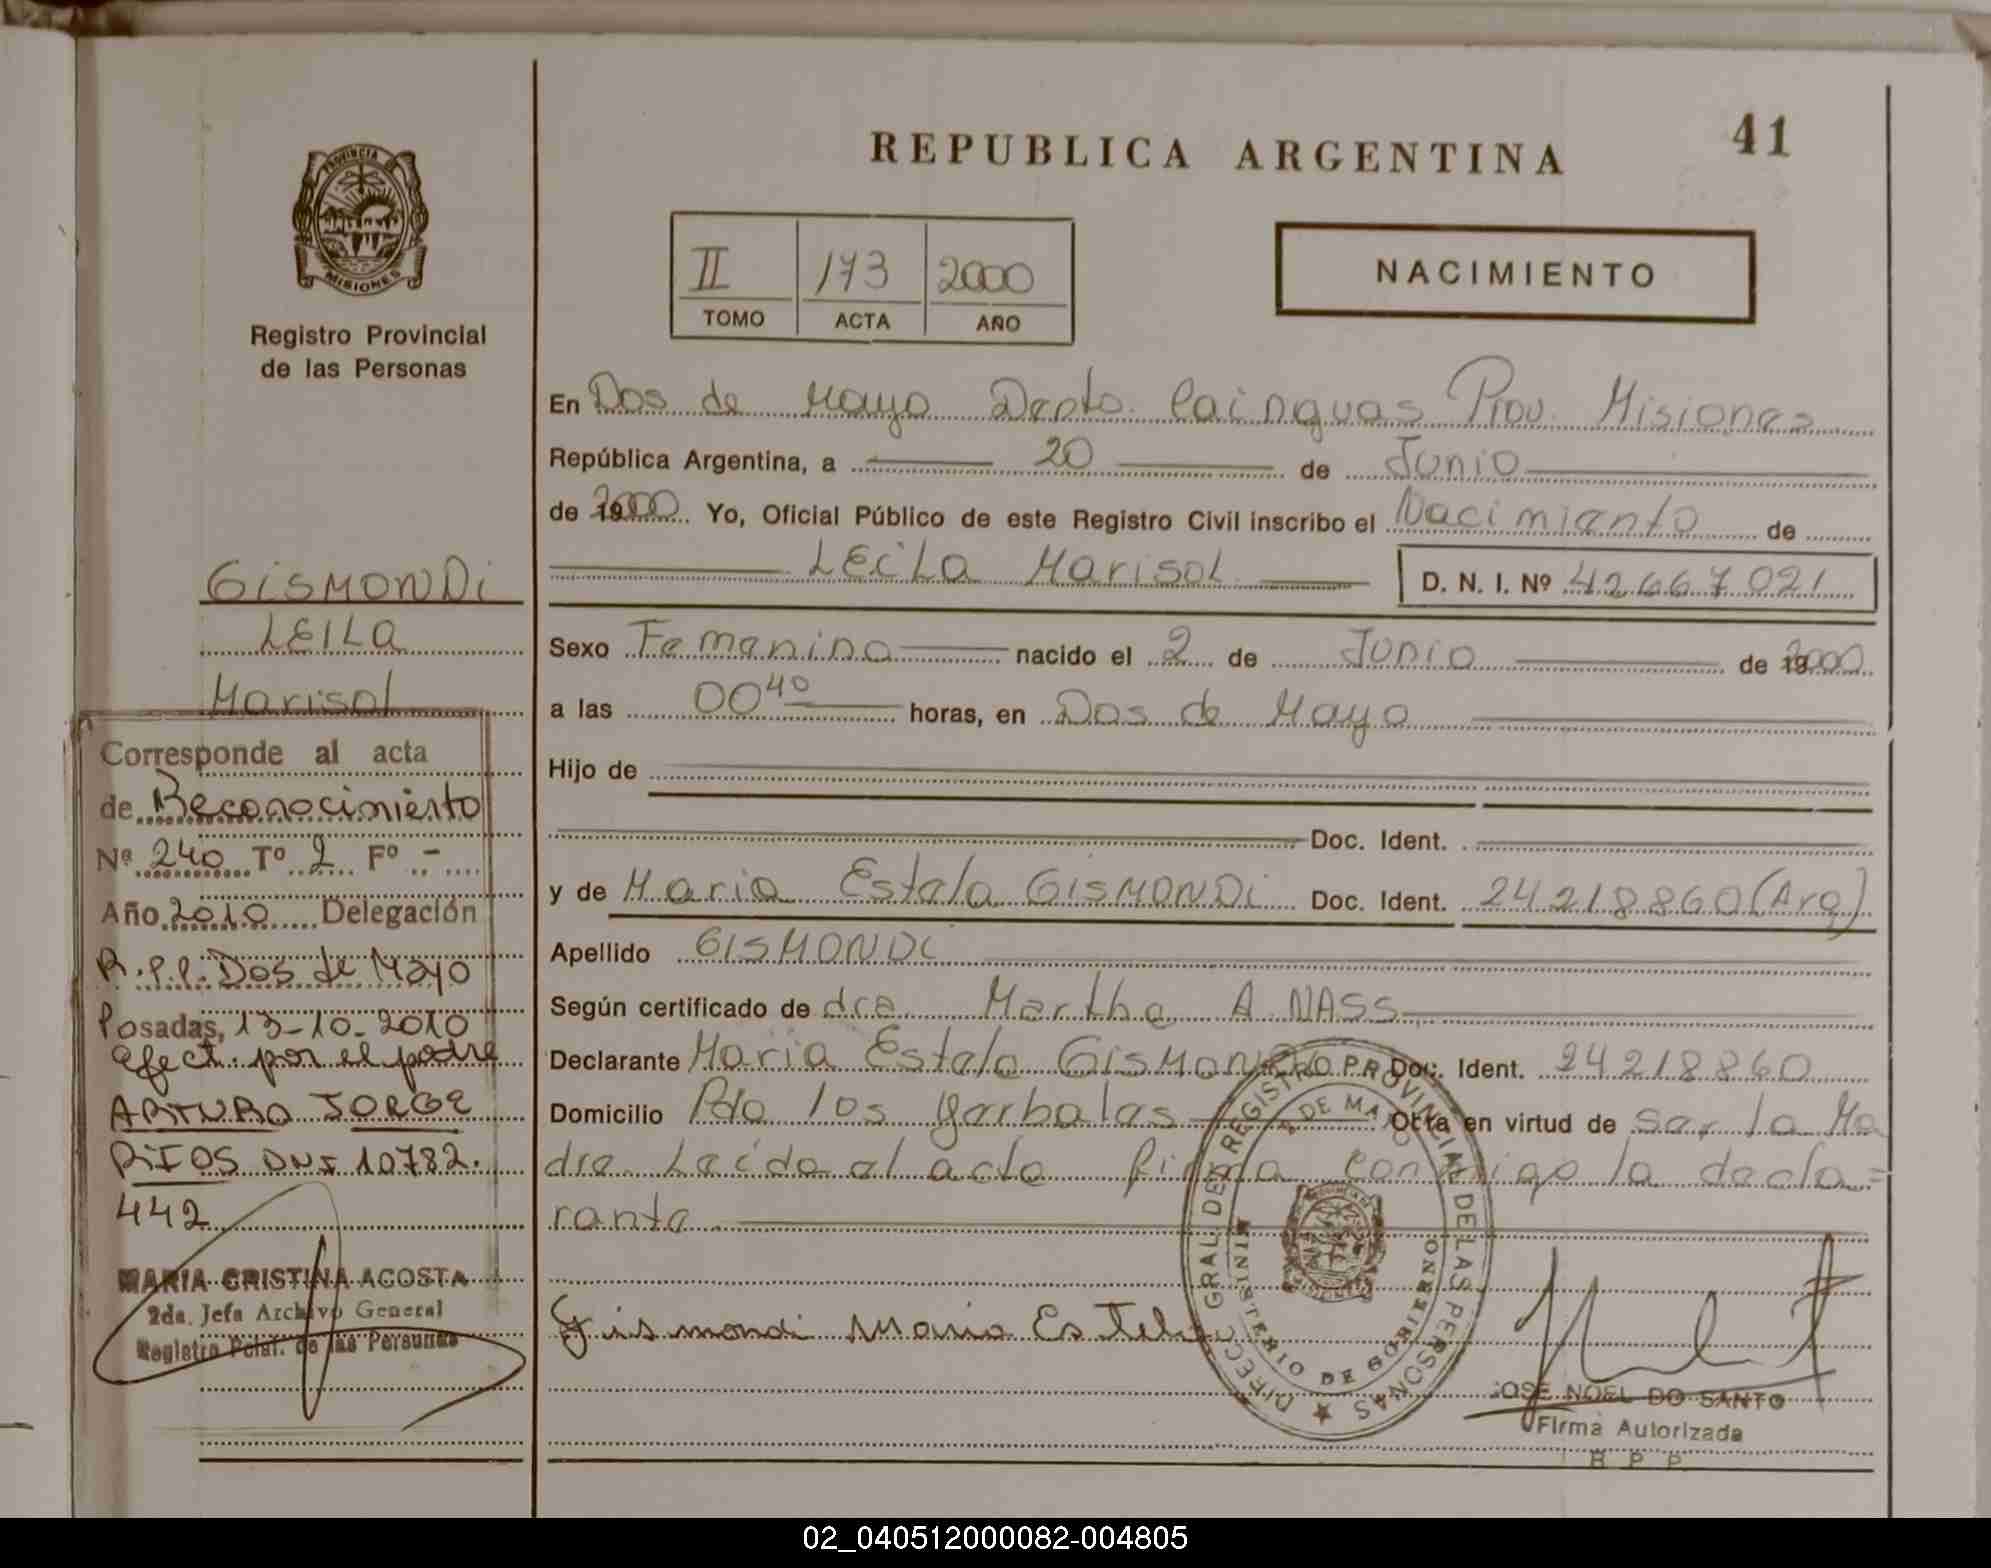 REPUBLICA ARGENTINA
41
PROVINCIA DE
MISIONES
Registro Provincial
de las Personas
II 173 2000
TOMO ACTA AÑO
NACIMIENTO
En Dos de Mayo Dpto. Cainguas Prov. Misiones
República Argentina, a 20 de Junio
de 2000. Yo, Oficial Público de este Registro Civil inscribo el Nacimiento de
LEiLa Marisol D. N. I. Nº 42667021
Sexo Femenino nacido el 2 de Junio de 2000
a las 00 40 horas, en Dos de Mayo
Hijo de
Doc. Ident.
y de Maria Estela GiSMONDi Doc. Ident. 24218860 (Arg)
Apellido GISMONDi
Según certificado de dra Martha A. NASS
Declarante Maria Estela GisMONDi Doc. Ident. 24218860
Domicilio Pdo los Yerbales Obra en virtud de ser la Ma
dre. Leida el acta firma conmigo la decla=
rante
Gismondi Maria Estela
DIRECC. GRAL. DEL REGISTRO PROVINCIAL DE LAS PERSONAS
2 DE MAYO
MINISTERIO DE GOBIERNO
JOSE NOEL DO SANTO
Firma Autorizada
R P P
GiSMONDi
LEILa
Marisol
Corresponde al acta
de Reconocimiento
Nº 240 Tº 2 Fº -
Año 2010 Delegación
R.P.P. Dos de Mayo
Posadas, 13-10-2010
efect. por el padre
ARTURO JORGE
RIOS DNI 10782.
442
MARIA CRISTINA ACOSTA
2da. Jefa Archivo General
Registro Pcial. de las Personas
02_040512000082-004805